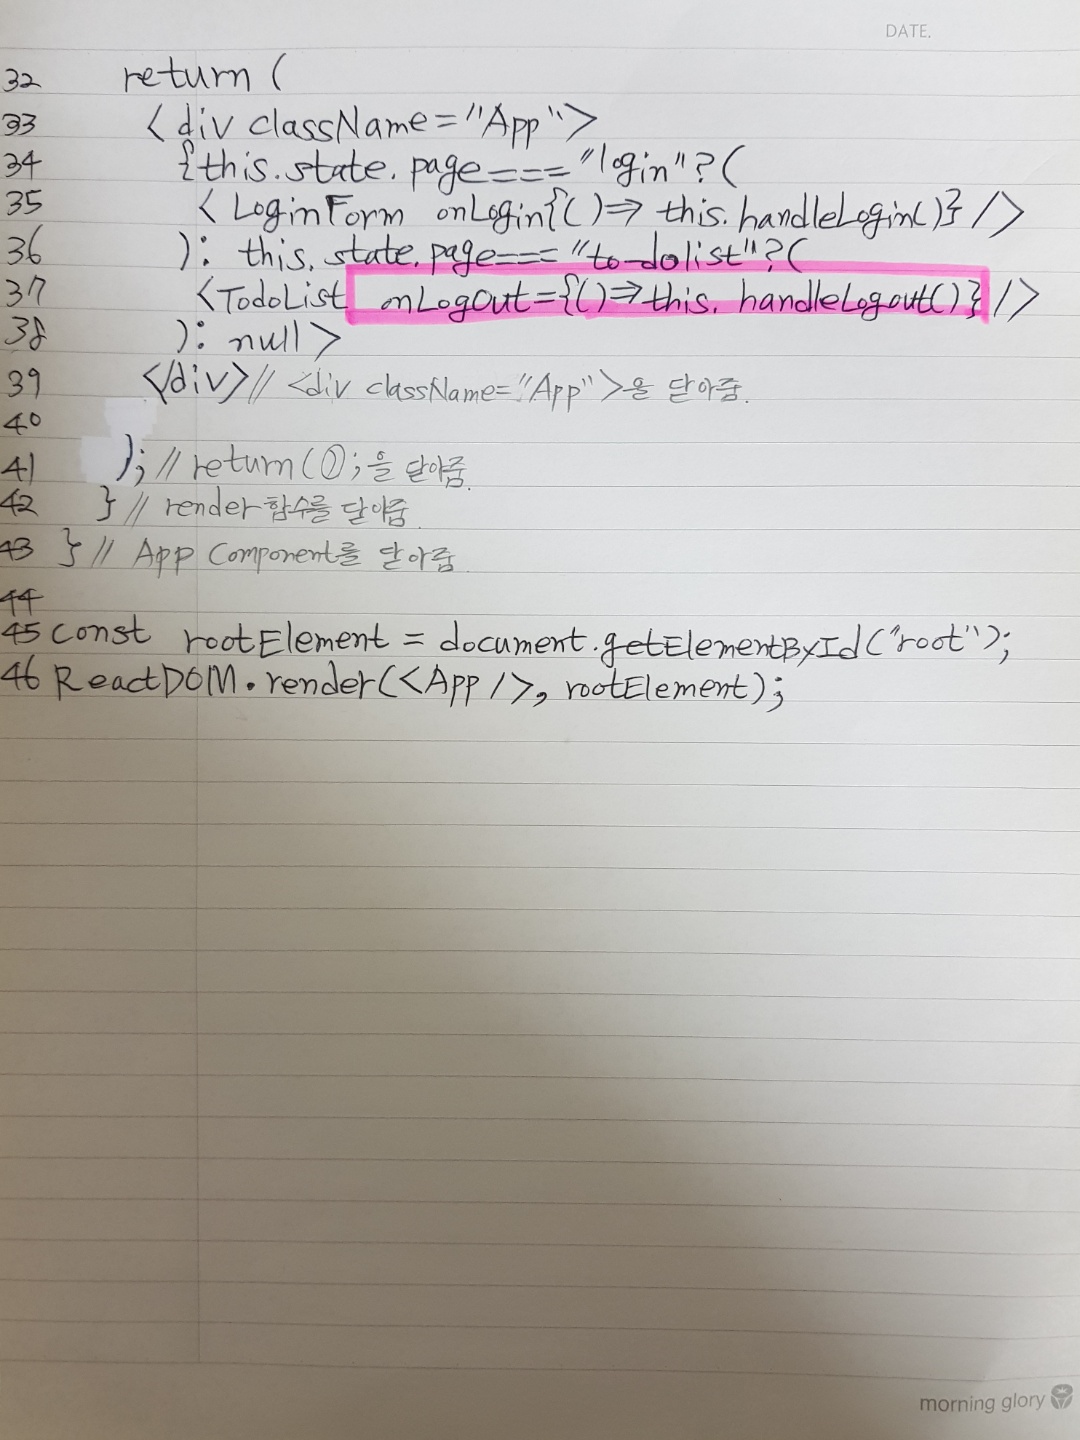 DATE.
32 return (
33 <div className="App">
34 {this.state.page==="login"?(
35 <LoginForm onLogin{()=>this.handleLogin()} />
36 ): this.state.page==="to-dolist"?(
37 <TodoList onLogOut={()=>this.handleLogout()} />
38 ): null>
39 </div>// <div className="App">을 닫아줌.
40
41 ); // return(); 을 닫아줌.
42 } // render함수를 닫아줌
43 } // App Component를 닫아줌
44
45 const rootElement = document.getElementById("root");
46 ReactDOM.render(<App />, rootElement);
morning glory